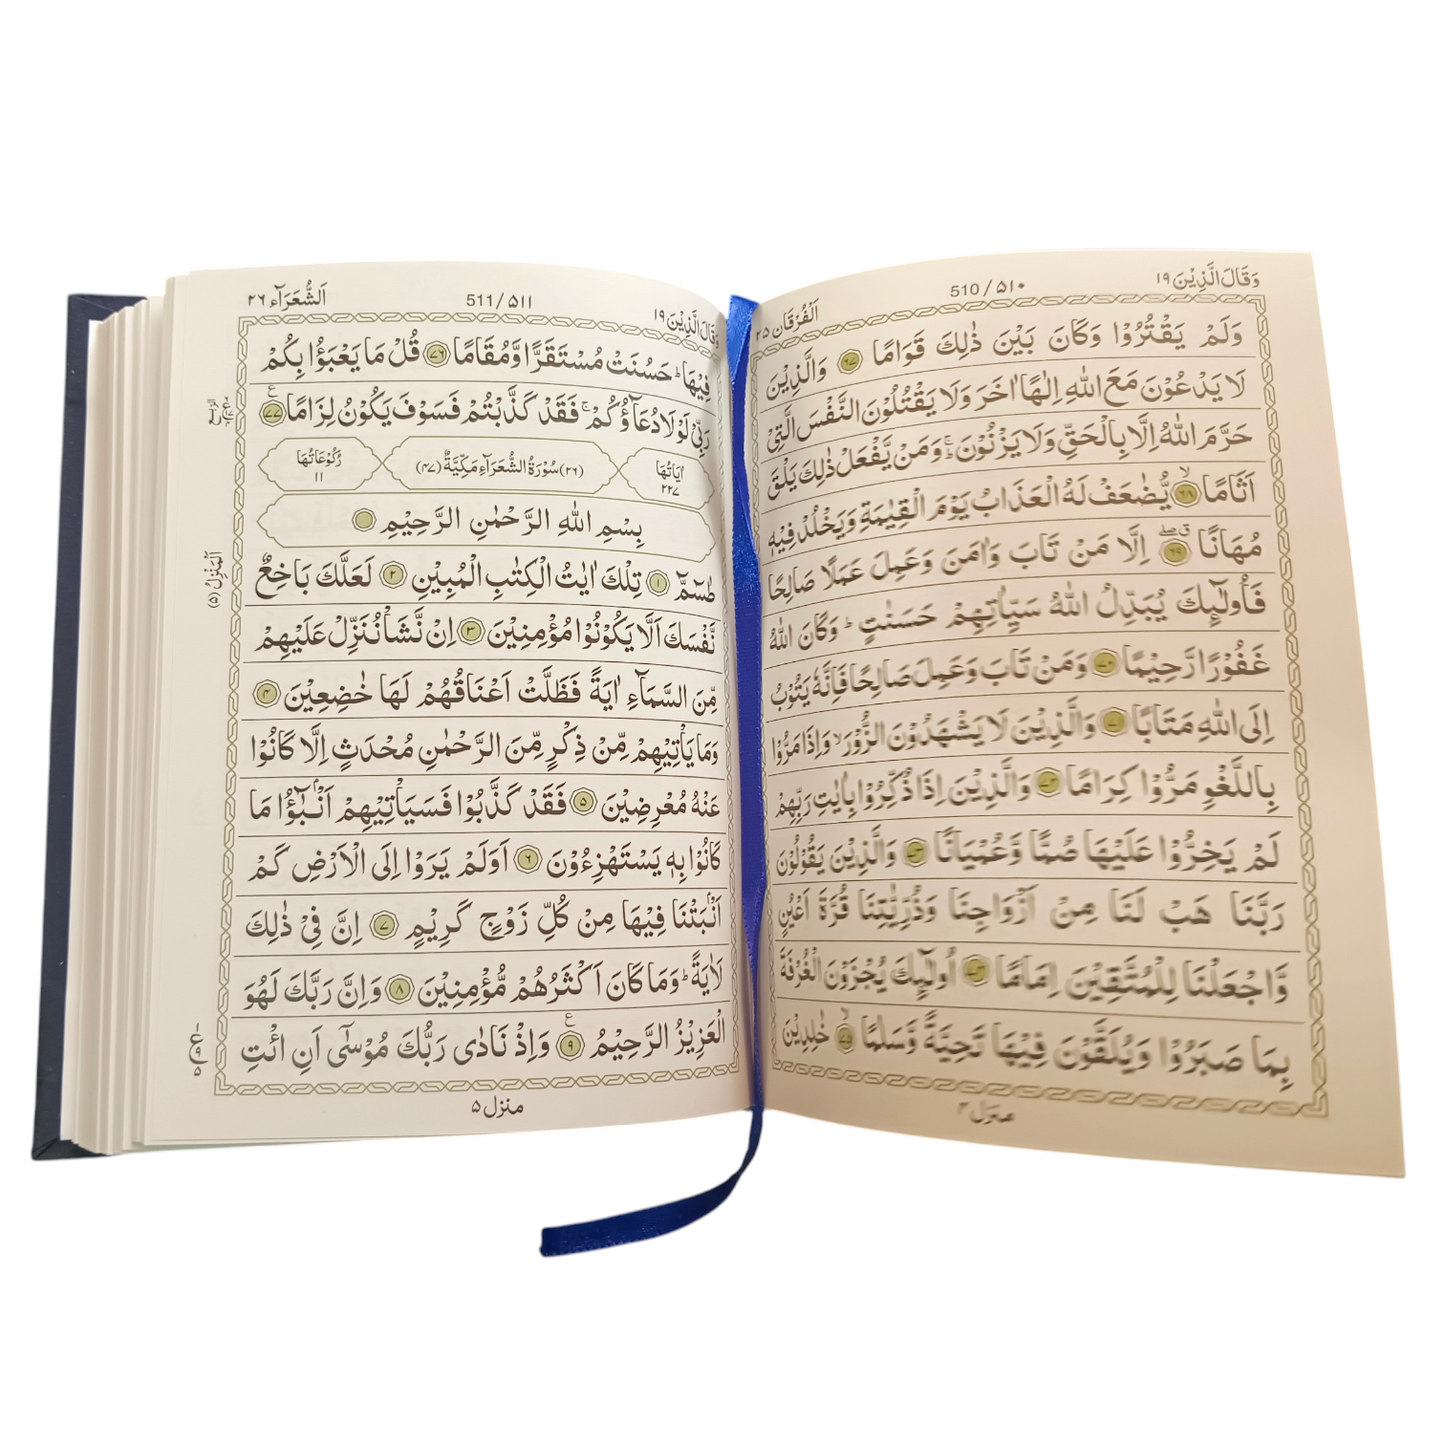 وَقَالَ الَّذِيْنَ ١٩
510/٥١٠
اَلْفُرْقَان ٢٥
وَلَمْ يَقْتُرُوْا وَكَانَ بَيْنَ ذٰلِكَ قَوَامًا ٦٧ وَالَّذِيْنَ
لَا يَدْعُوْنَ مَعَ اللّٰهِ اِلٰهًا اٰخَرَ وَلَا يَقْتُلُوْنَ النَّفْسَ الَّتِيْ
حَرَّمَ اللّٰهُ اِلَّا بِالْحَقِّ وَلَا يَزْنُوْنَ ۚ وَمَنْ يَّفْعَلْ ذٰلِكَ يَلْقَ
اَثَامًا ٦٨ يُّضٰعَفْ لَهُ الْعَذَابُ يَوْمَ الْقِيٰمَةِ وَيَخْلُدْ فِيْهٖ
مُهَانًا ٦٩ اِلَّا مَنْ تَابَ وَاٰمَنَ وَعَمِلَ عَمَلًا صَالِحًا
فَاُولٰٓئِكَ يُبَدِّلُ اللّٰهُ سَيِّاٰتِهِمْ حَسَنٰتٍ ؕ وَكَانَ اللّٰهُ
غَفُوْرًا رَّحِيْمًا ٧٠ وَمَنْ تَابَ وَعَمِلَ صَالِحًا فَاِنَّهٗ يَتُوْبُ
اِلَى اللّٰهِ مَتَابًا ٧١ وَالَّذِيْنَ لَا يَشْهَدُوْنَ الزُّوْرَ ۙ وَاِذَا مَرُّوْا
بِاللَّغْوِ مَرُّوْا كِرَامًا ٧٢ وَالَّذِيْنَ اِذَا ذُكِّرُوْا بِاٰيٰتِ رَبِّهِمْ
لَمْ يَخِرُّوْا عَلَيْهَا صُمًّا وَّعُمْيَانًا ٧٣ وَالَّذِيْنَ يَقُوْلُوْنَ
رَبَّنَا هَبْ لَنَا مِنْ اَزْوَاجِنَا وَذُرِّيّٰتِنَا قُرَّةَ اَعْيُنٍ
وَّاجْعَلْنَا لِلْمُتَّقِيْنَ اِمَامًا ٧٤ اُولٰٓئِكَ يُجْزَوْنَ الْغُرْفَةَ
بِمَا صَبَرُوْا وَيُلَقَّوْنَ فِيْهَا تَحِيَّةً وَّسَلٰمًا ٧٥ خٰلِدِيْنَ
منزل ٤
وَقَالَ الَّذِيْنَ ١٩
511/٥١١
اَلشُّعَرَآء ٢٦
فِيْهَا ؕ حَسُنَتْ مُسْتَقَرًّا وَّمُقَامًا ٧٦ قُلْ مَا يَعْبَؤُا بِكُمْ
رَبِّيْ لَوْلَا دُعَآؤُكُمْ ۚ فَقَدْ كَذَّبْتُمْ فَسَوْفَ يَكُوْنُ لِزَامًا ٧٧
اٰيَاتُهَا ٢٢٧
(٢٦) سُوْرَةُ الشُّعَرَآءِ مَكِّيَّةٌ (٤٧)
رُكُوْعَاتُهَا ١١
بِسْمِ اللّٰهِ الرَّحْمٰنِ الرَّحِيْمِ
طٰسٓمّٓ ١ تِلْكَ اٰيٰتُ الْكِتٰبِ الْمُبِيْنِ ٢ لَعَلَّكَ بَاخِعٌ
اَلْمَنْزِلُ (٥)
نَّفْسَكَ اَلَّا يَكُوْنُوْا مُؤْمِنِيْنَ ٣ اِنْ نَّشَاْ نُنَزِّلْ عَلَيْهِمْ
مِّنَ السَّمَآءِ اٰيَةً فَظَلَّتْ اَعْنَاقُهُمْ لَهَا خٰضِعِيْنَ ٤
وَمَا يَاْتِيْهِمْ مِّنْ ذِكْرٍ مِّنَ الرَّحْمٰنِ مُحْدَثٍ اِلَّا كَانُوْا
عَنْهُ مُعْرِضِيْنَ ٥ فَقَدْ كَذَّبُوْا فَسَيَاْتِيْهِمْ اَنْۢبٰٓؤُا مَا
كَانُوْا بِهٖ يَسْتَهْزِءُوْنَ ٦ اَوَلَمْ يَرَوْا اِلَى الْاَرْضِ كَمْ
اَنْۢبَتْنَا فِيْهَا مِنْ كُلِّ زَوْجٍ كَرِيْمٍ ٧ اِنَّ فِيْ ذٰلِكَ
لَاٰيَةً ؕ وَمَا كَانَ اَكْثَرُهُمْ مُّؤْمِنِيْنَ ٨ وَاِنَّ رَبَّكَ لَهُوَ
الْعَزِيْزُ الرَّحِيْمُ ٩ وَاِذْ نَادٰى رَبُّكَ مُوْسٰٓى اَنِ ائْتِ
منزل ٥